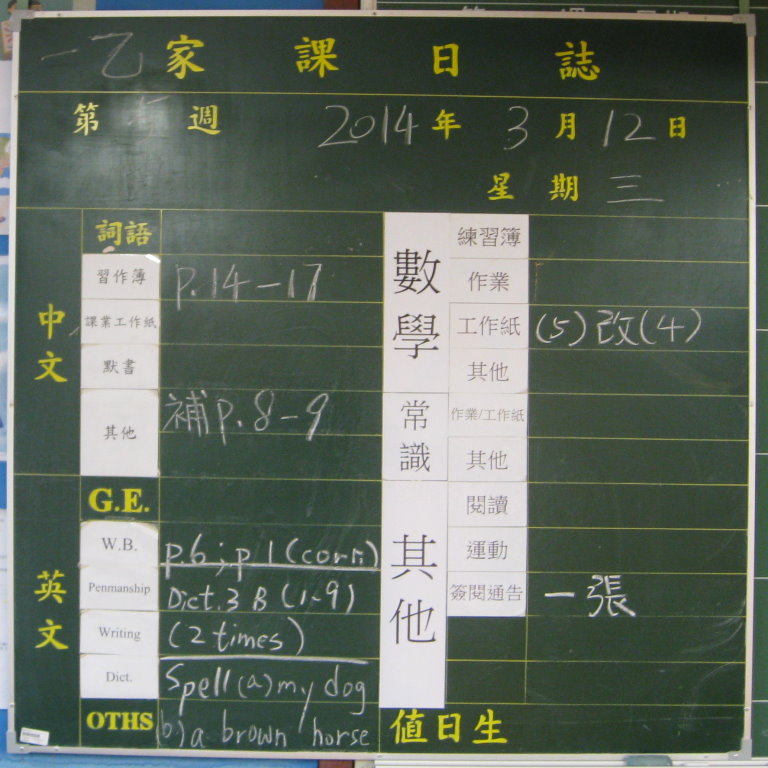 一乙家課日誌
第 週 2014年3月12日
星期三
中文
詞語
習作簿 p.14-17
課業工作紙
默書
其他 補p.8-9
英文
G.E.
W.B. p.6; p1(corr.)
Penmanship Dict.3 B (1-9)
Writing (2 times)
Dict. Spell (a) my dog
OTHS (b) a brown horse
數學
練習簿
作業
工作紙 (5)改(4)
其他
常識
作業/工作紙
其他
其他
閱讀
運動
簽閱通告 一張
值日生